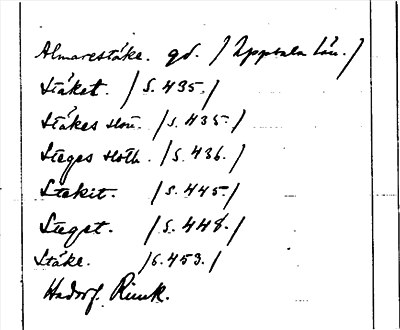 Almarestäke. gd. / Uppsala län. /
Stäket. / S. 435. /
Stäkes slott. / S. 435. /
Steges sloth. / S. 436. /
Stekit. / S. 445. /
Steget. / S. 448. /
Stäke. / S. 453. /
Hadorf. Rimk.